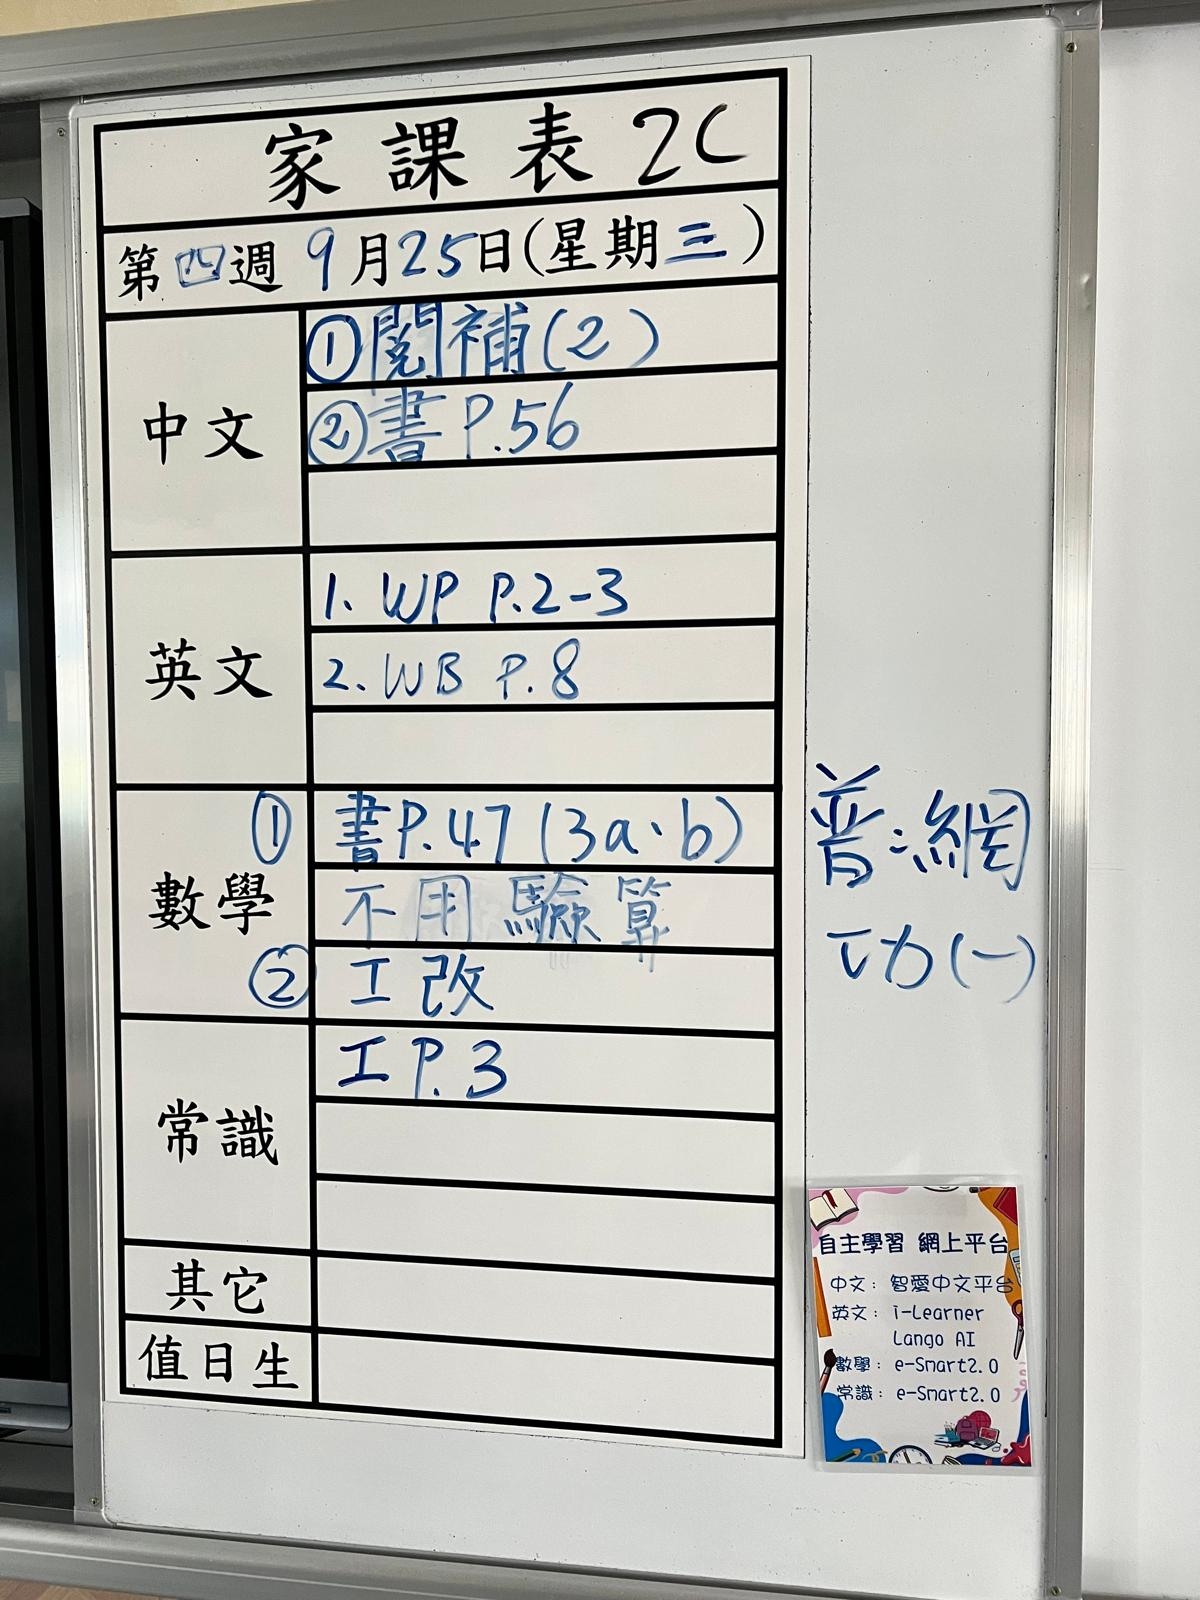 家課表 2C
第四週 9月25日(星期三)
中文
①閱補(2)
②書 P.56
英文
1. WP P.2-3
2. WB P.8
數學
① 書P.47 (3a、b)
不用驗算
② 工改
常識
工 P.3
其它
值日生
普:網
功(一)
自主學習 網上平台
中文: 智愛中文平台
英文: i-Learner
Lango AI
數學: e-Smart2.0
常識: e-Smart2.0